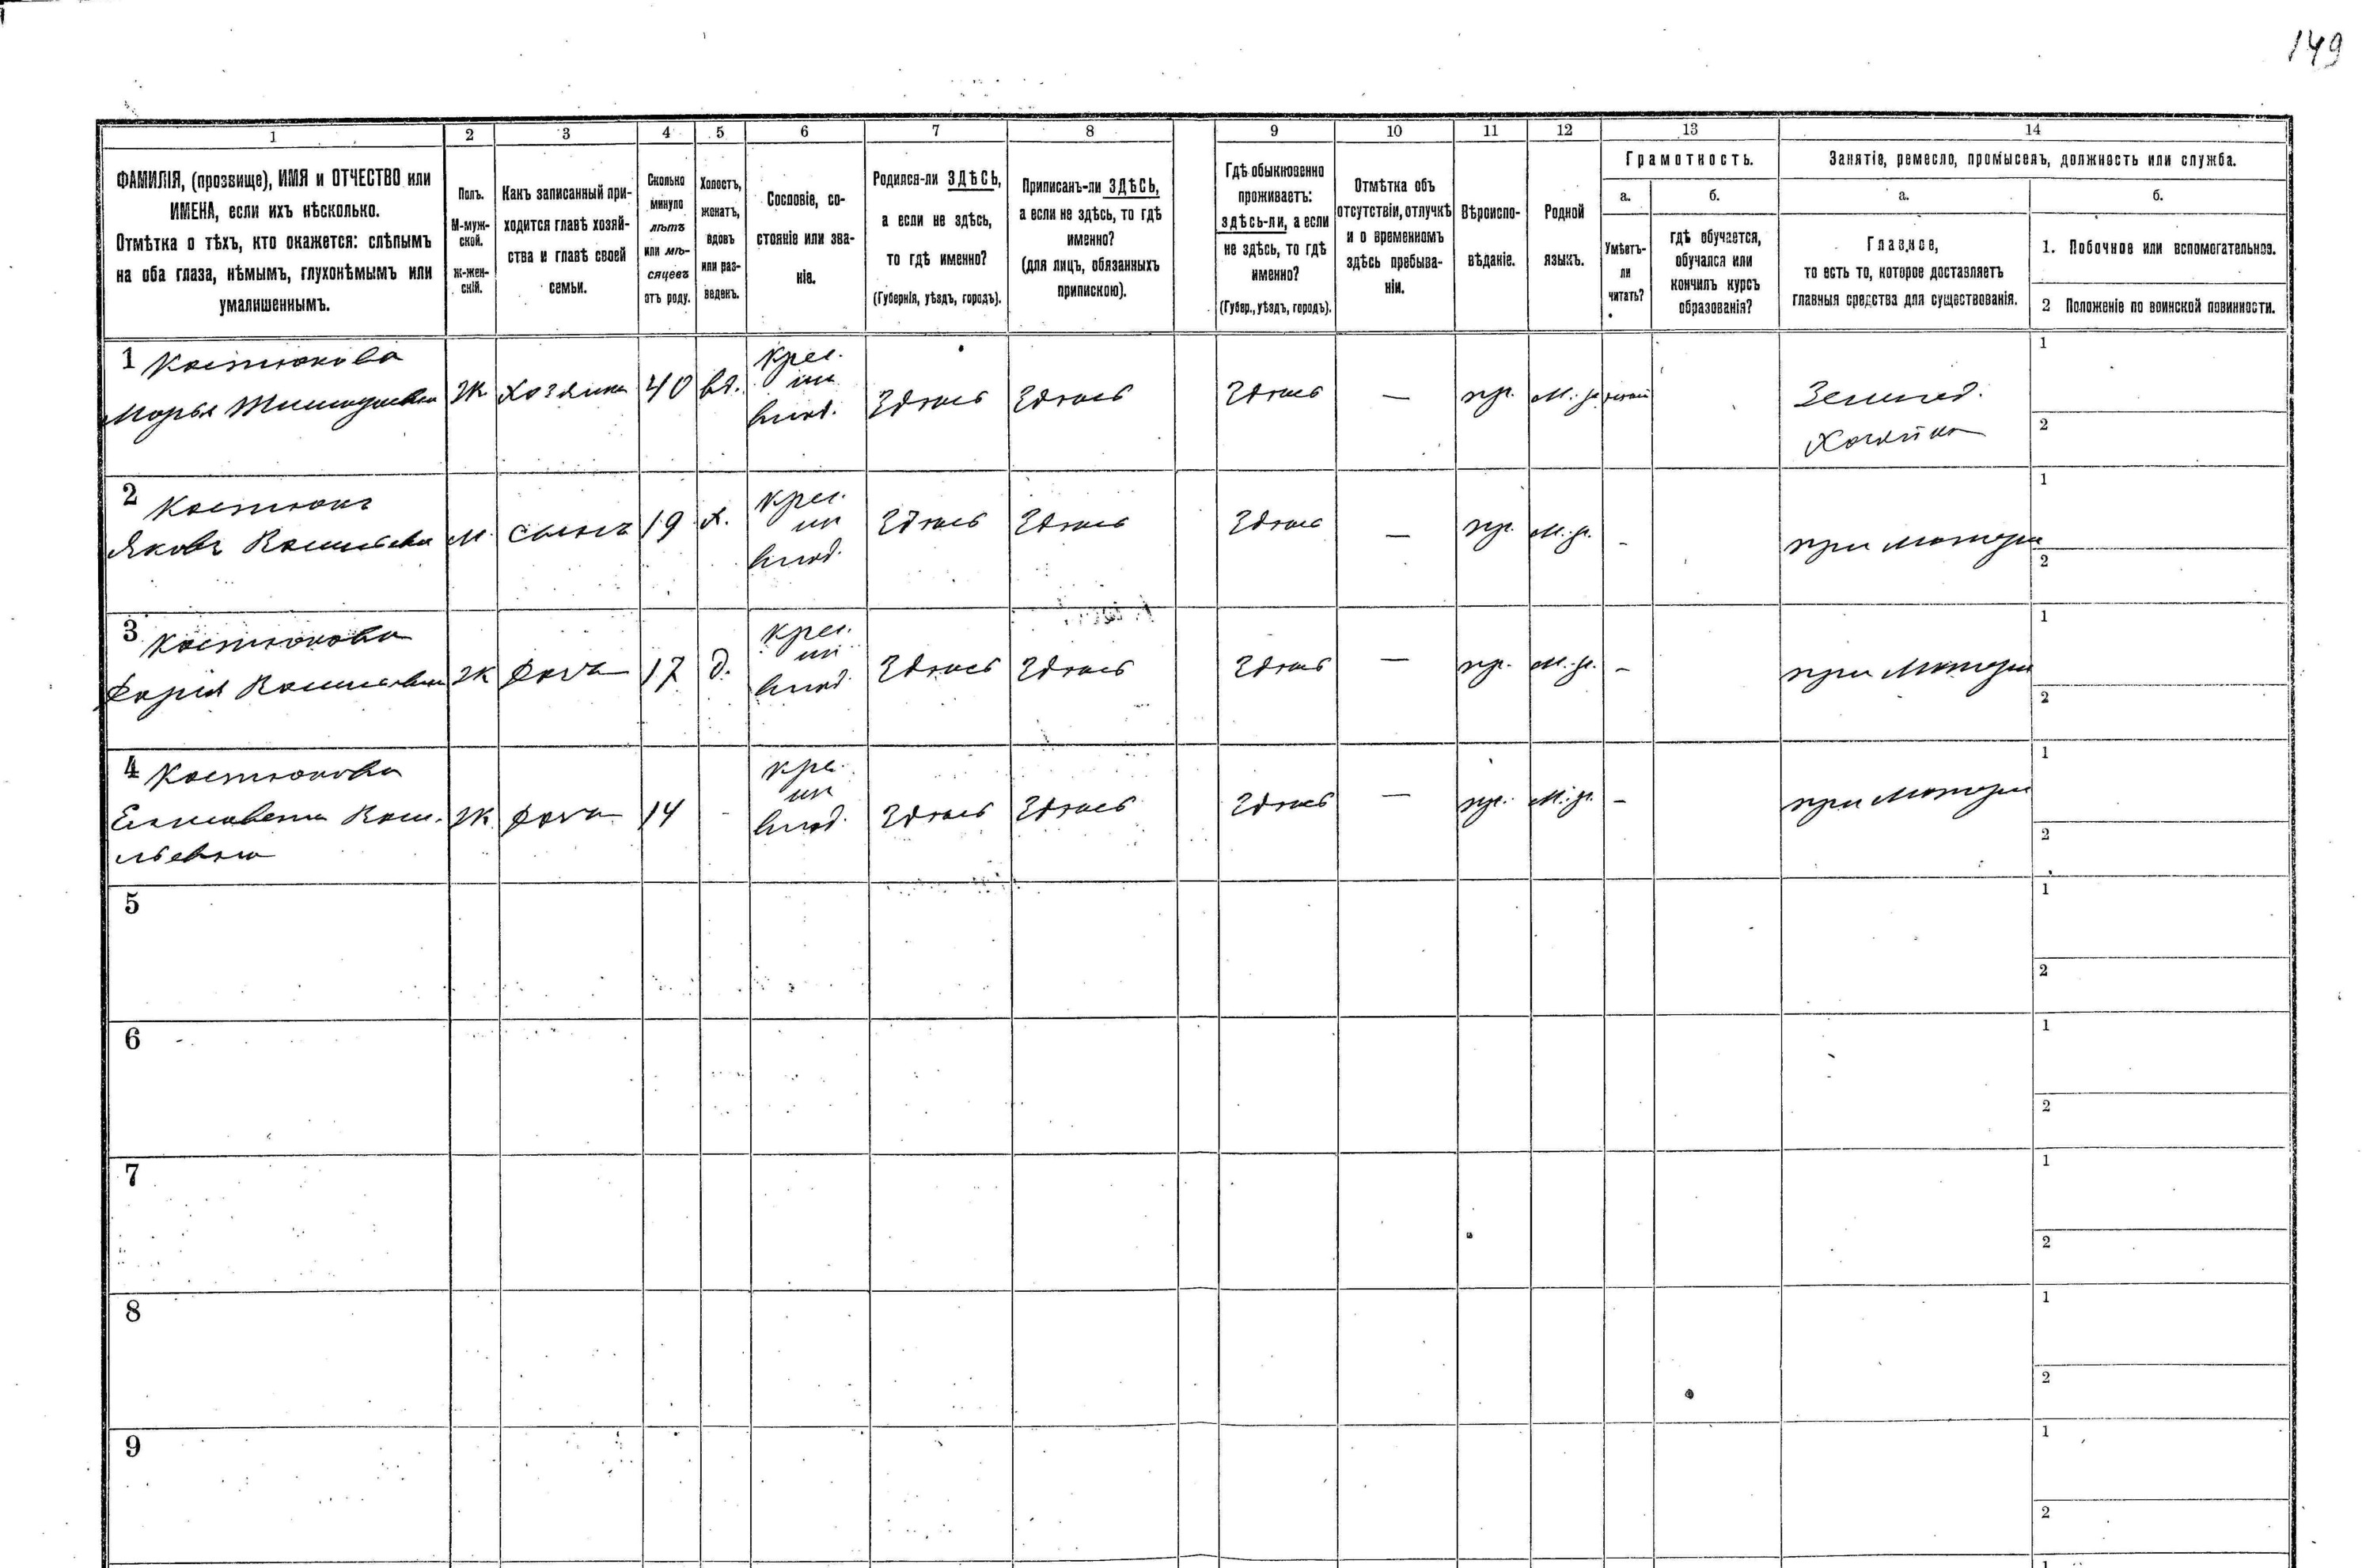 149
1 2 3 4 5 6 7 8 9 10 11 12 13 14
ФАМИЛІЯ, (прозвище), ИМЯ и ОТЧЕСТВО или
ИМЕНА, если ихъ нѣсколько.
Отмѣтка о тѣхъ, кто окажется: слѣпымъ
на оба глаза, нѣмымъ, глухонѣмымъ или
умалишеннымъ.
Полъ.
М-муж-
ской.
Ж-жен-
скій.
Какъ записанный при-
ходится главѣ хозяй-
ства и главѣ своей
семьи.
Сколько
минуло
лѣтъ
или мѣ-
сяцевъ
отъ роду.
Холостъ,
женатъ,
вдовъ
или раз-
веденъ.
Сословіе, со-
стояніе или зва-
ніе.
Родился-ли ЗДѢСЬ,
а если не здѣсь,
то гдѣ именно?
(Губернія, уѣздъ, городъ).
Приписанъ-ли ЗДѢСЬ,
а если не здѣсь, то гдѣ
именно?
(для лицъ, обязанныхъ
припискою).
Гдѣ обыкновенно
проживаетъ:
здѣсь-ли, а если
не здѣсь, то гдѣ
именно?
(Губер., уѣздъ, городъ).
Отмѣтка объ
отсутствіи, отлучкѣ
и о временномъ
здѣсь пребыва-
ніи.
Вѣроиспо-
вѣданіе.
Родной
языкъ.
Грамотность.
а.
Умѣетъ-
ли
читать?
б.
гдѣ обучается,
обучался или
кончилъ курсъ
образованія?
Занятіе, ремесло, промыселъ, должность или служба.
а.
Главное,
то есть то, которое доставляетъ
главныя средства для существованія.
б.
1. Побочное или вспомогательное.
2 Положеніе по воинской повинности.
1 Костюкова
Марья Тимофеевна Ж хозяйка 40 вд. крес. изъ влад. Здѣсь Здѣсь Здѣсь — пр. м.-р. Землед.
Хозяйка
1
2
2 Костюкъ
Яковъ Васильевъ м. сынъ 19 х. крес. изъ влад. Здѣсь Здѣсь Здѣсь — пр. м.-р. - при матери
1
2
3 Костюкова
Дарія Васильевна Ж дочь 17 д. крес. изъ влад. Здѣсь Здѣсь Здѣсь — пр. м.-р. - при матери
1
2
4 Костюкова
Елисавета Васи- Ж дочь 14 - кре. изъ влад. Здѣсь Здѣсь Здѣсь — пр. м.-р. - при матери
льевна
1
2
5
1
2
6
1
2
7
1
2
8
1
2
9
1
2
1